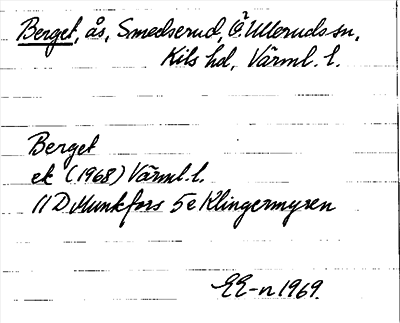 Berget, ås, Smedserud, Ö. Ulleruds sn,
Kils hd, Värml. l.
Berget
ek (1968) Värml. l.
11D Munkfors 5e Klingermyren
EE-n 1969.